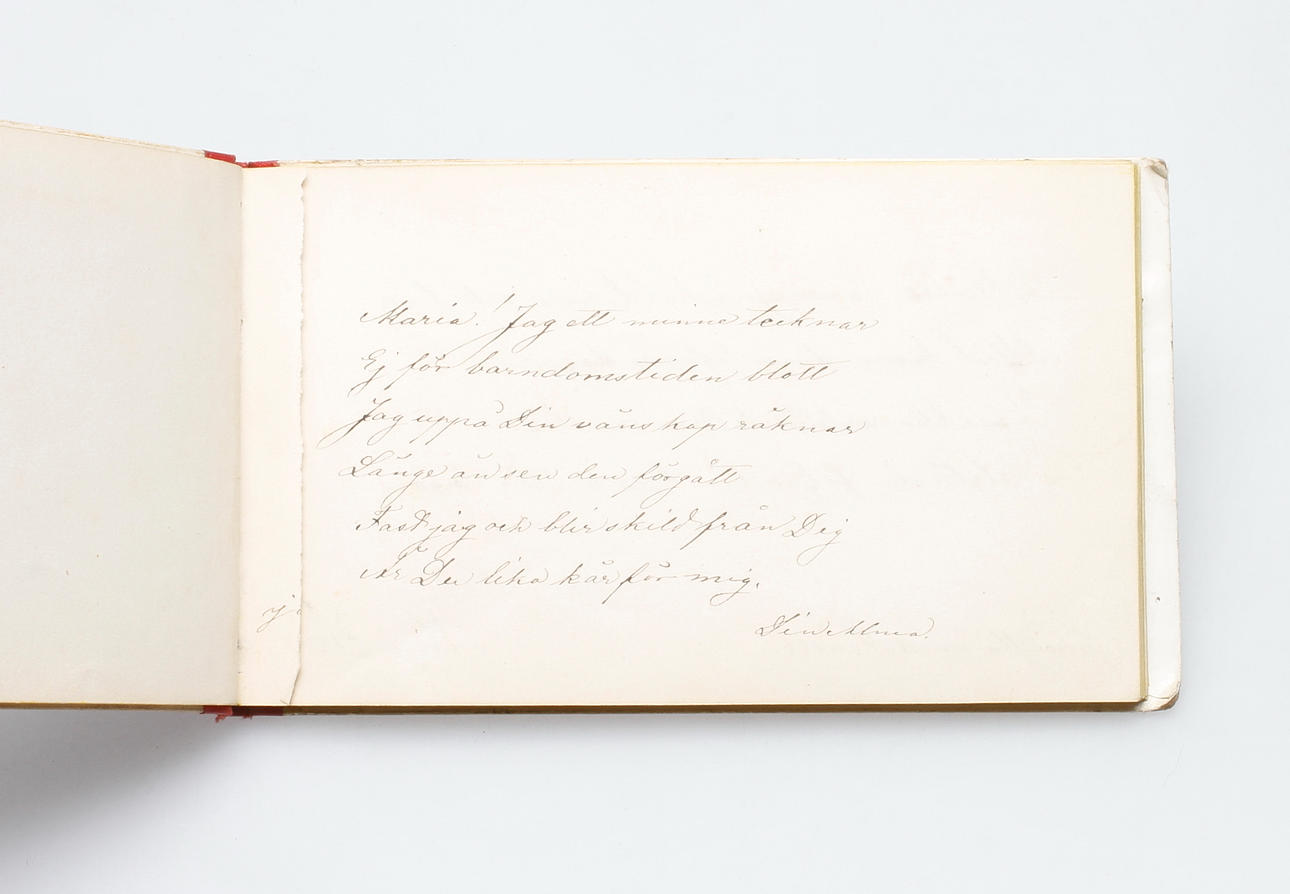 Maria! Jag ett minne tecknar
Ej för barndomstiden blott
Jag uppå Din vänskap räknar
Länge än sen den förgått
Fast jag och blir skild från Dig
Är Du lika kär för mig.
Din Alma.